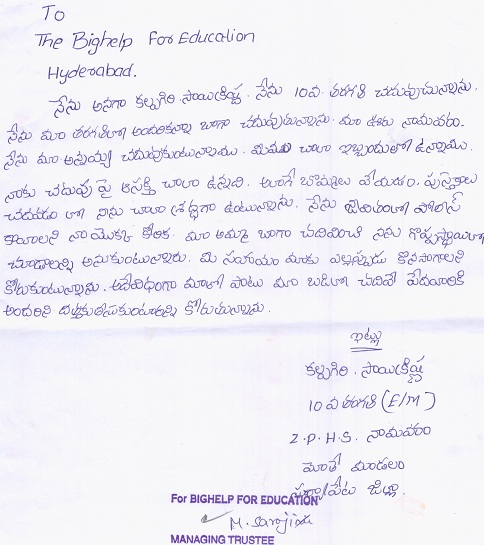 To
The Bighelp For Education
Hyderabad.
నేను అనగా కల్పగిరి.సాయిక్రిష్ణ. నేను 10వ తరగతి చదువుచున్నాను.
నేను మా తరగతిలో అందరికన్నా బాగా చదువుతున్నాను. మా ఊరు నామవరం.
నేను మా అన్నయ్య చదువుకుంటున్నాము. మేము చాలా ఇబ్బందులో ఉన్నాము.
నాకు చదువు పై ఆసక్తి చాలా ఉన్నది. అలాగే బొమ్మలు వేయడం, పుస్తకాలు
చదవడం లో నేను చాలా శ్రద్ధగా ఉంటున్నాను. నేను జీవితంలో పోలీస్
కావాలని నా యొక్క కోరిక. మా అమ్మ బాగా చదివించి నన్ను గొప్పస్థాయిలో
చూడాలన్ని అనుకుంటున్నారు. మి సహాయం మాకు ఎల్లప్పుడు కొనసాగాలని
కోరుకుంటున్నాను. అదేవిధంగా మాతో పాటు మా బడిలో చదివే పేదవారికి
అందరిని కోరుతున్నాను.
ఇట్లు
కల్పగిరి. సాయిక్రిష్ణ
10 వ తరగతి (E/M)
Z.P.H.S. నామవరం
మోతే మండలం
సూర్యాపేట జిల్లా.
For BIGHELP FOR EDUCATION
M. Sarojini
MANAGING TRUSTEE